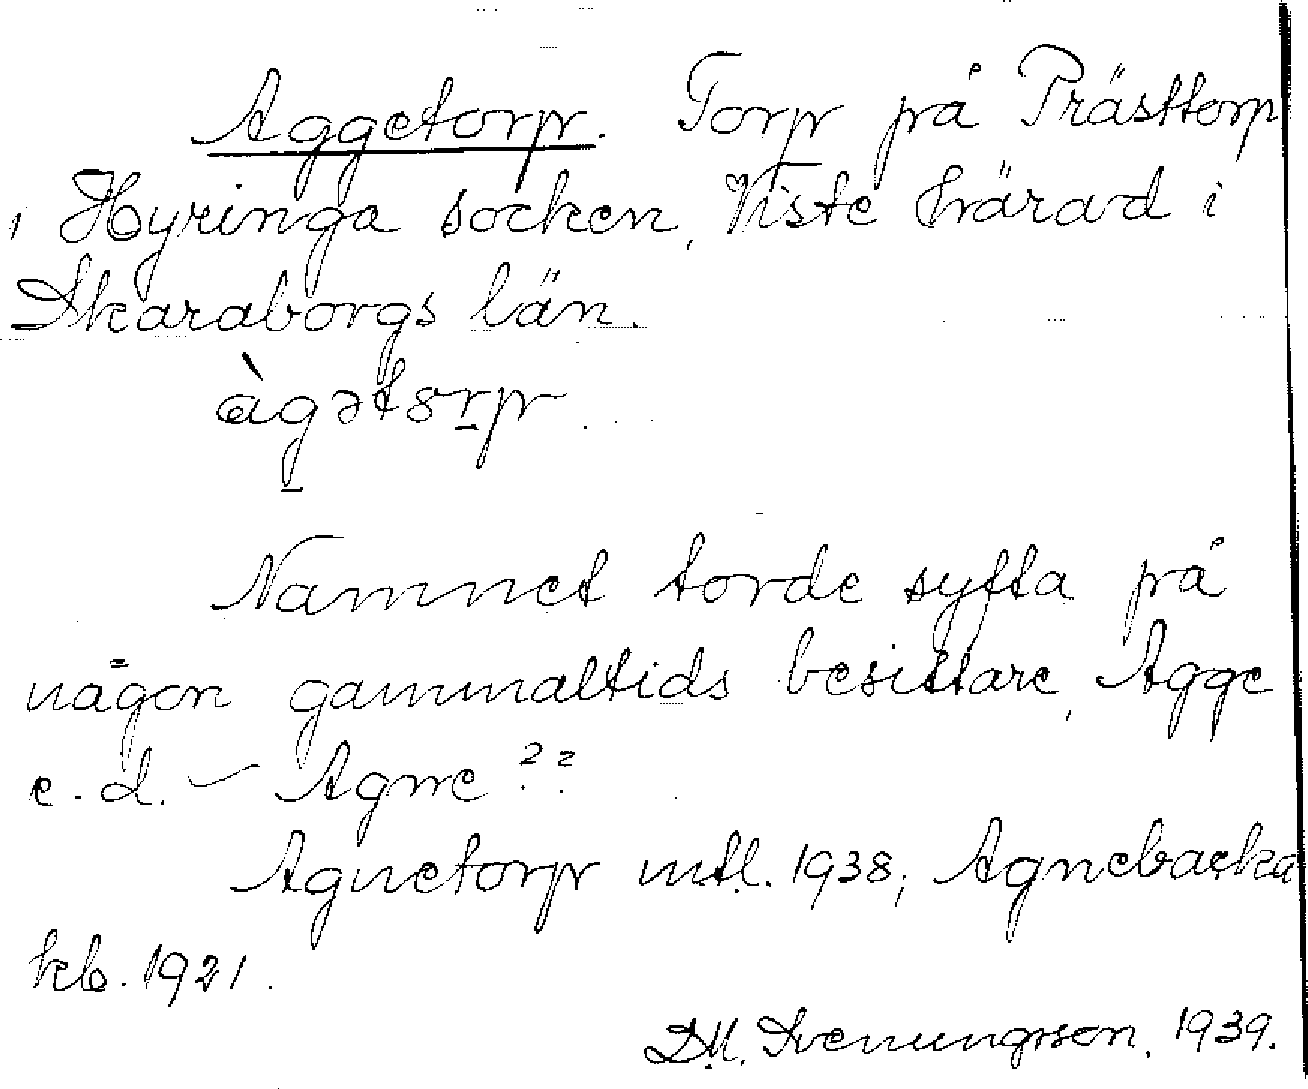 Aggetorp. Torp på Prästtorp
i Hyringa socken, Viste härad i
Skaraborgs län.
àgətsrp
Namnet torde syfta på
någon gammaltids besittare, Agge
e.d. – Agne??
Agnetorp mtl. 1938; Agnebacka
kb. 1921.
D.M. Svenungsson. 1939.